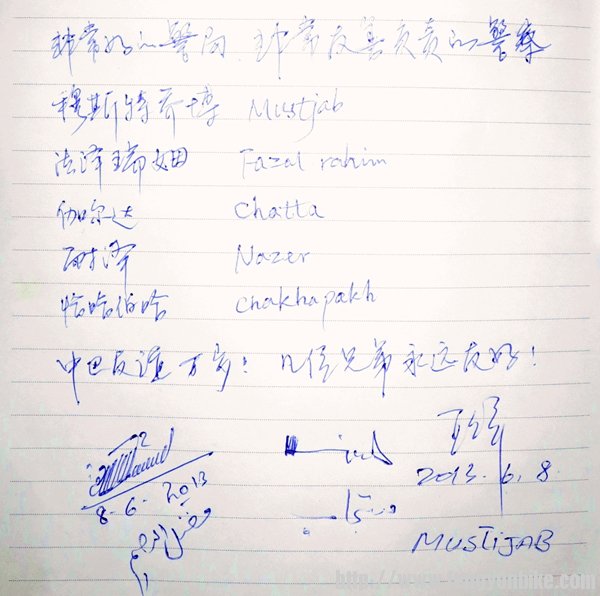 非常好的警局,非常友善负责的警察
穆斯特乔博 Mustjab
法泽瑞姆 Fazal rahim
伽尔达 Chatta
耐泽 Nazer
恰哈伯哈 chakhapakh
中巴友谊万岁! 几位兄弟永远友好!
8-6-2013
2013.6.8.
MUSTIJAB